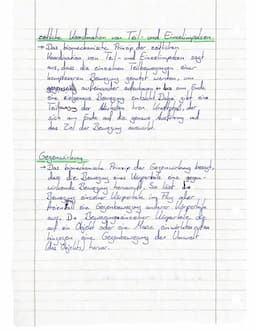 zeitliche Koordination von Teil- und Einzelimpulsen.
→ Das biomechanische Prinzip der zeitlichen
Koordination von Teil- und Einzelimpulsen sagt
aus, dass die einzelnen Teilbewegungen einer
komplexeren Bewegung genutzt werden, um
aufeinander aufbauen, so das am Ende
eine Bewegung entsteht. Dabei ist eine
der
sich am Ende auf die genaue Ausführung und
das Ziel der Bewegung auswirkt.
Gegenwirkung.
→ Das biomechanische Prinzip der Gegenwirkung besagt,
daß die Bewegung eines Körperteils eine gegen-
wirkende Bewegung hervorruft. So löst die
Bewegung einzelner Körperteile im Flug oder
freien Fall eine Gegenbewegung anderer Körperteile
aus. Die Bewegung einzelner Körperteile die
auf ein Objekt oder eine Masse einwirken
hingegen eine Gegenbewegung der Umwelt
(des Objekts) hervor.